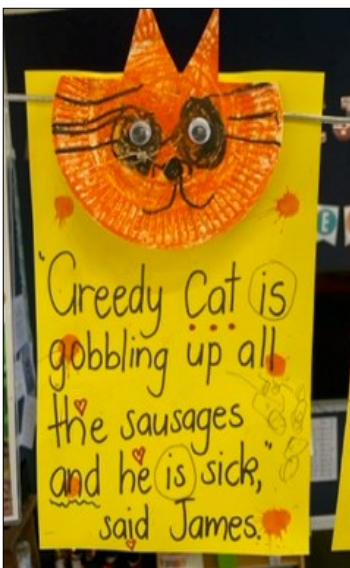 "Greedy Cat is
gobbling up all
the sausages
and he is sick,"
said James.
E